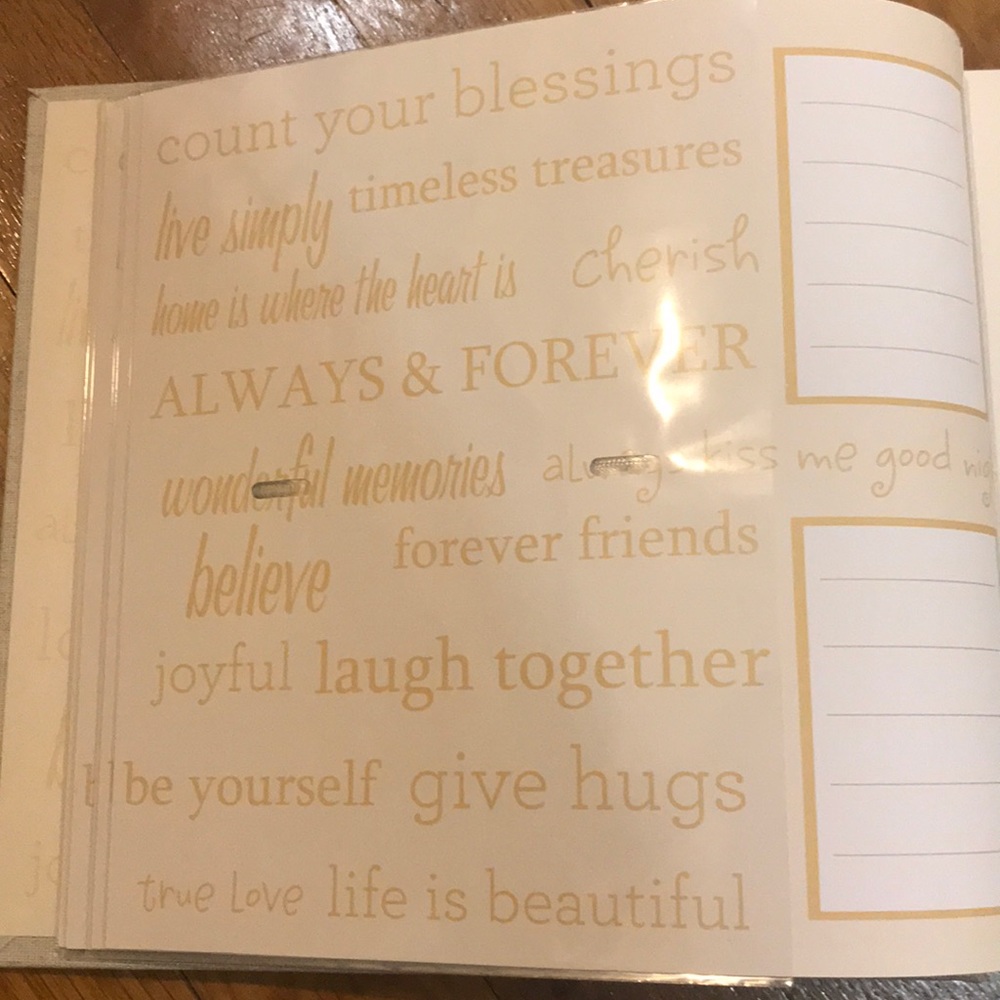 count your blessings
live simply timeless treasures
home is where the heart is cherish
ALWAYS & FOREVER
wonderful memories always kiss me good
believe forever friends
joyful laugh together
be yourself give hugs
true Love life is beautiful